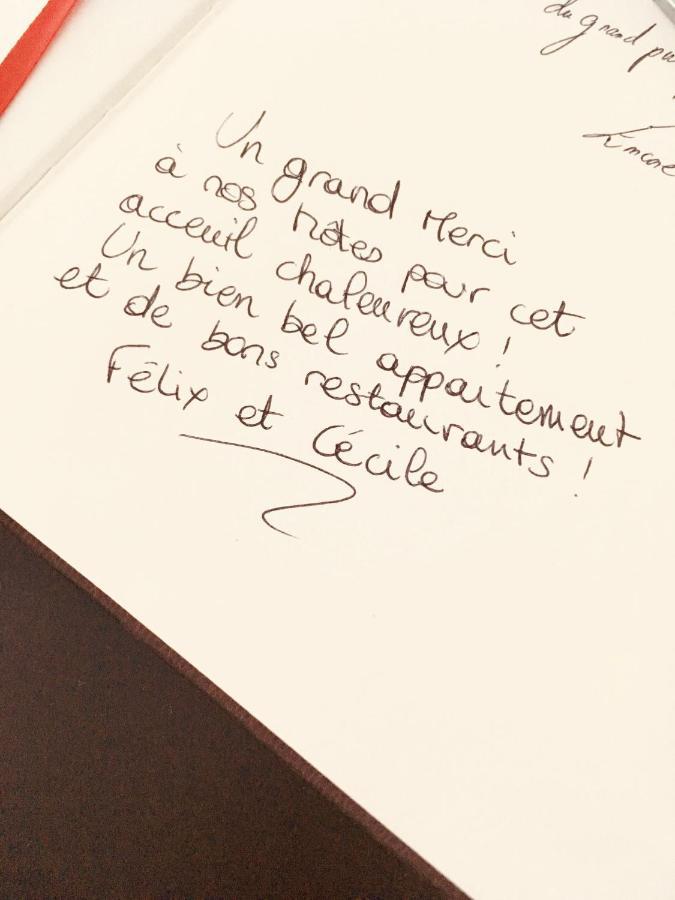 du grand
Encore
Un grand Merci
à nos hôtes pour cet
acceuil chaleureux !
Un bien bel appartement
et de bons restaurants !
Félix et Cécile